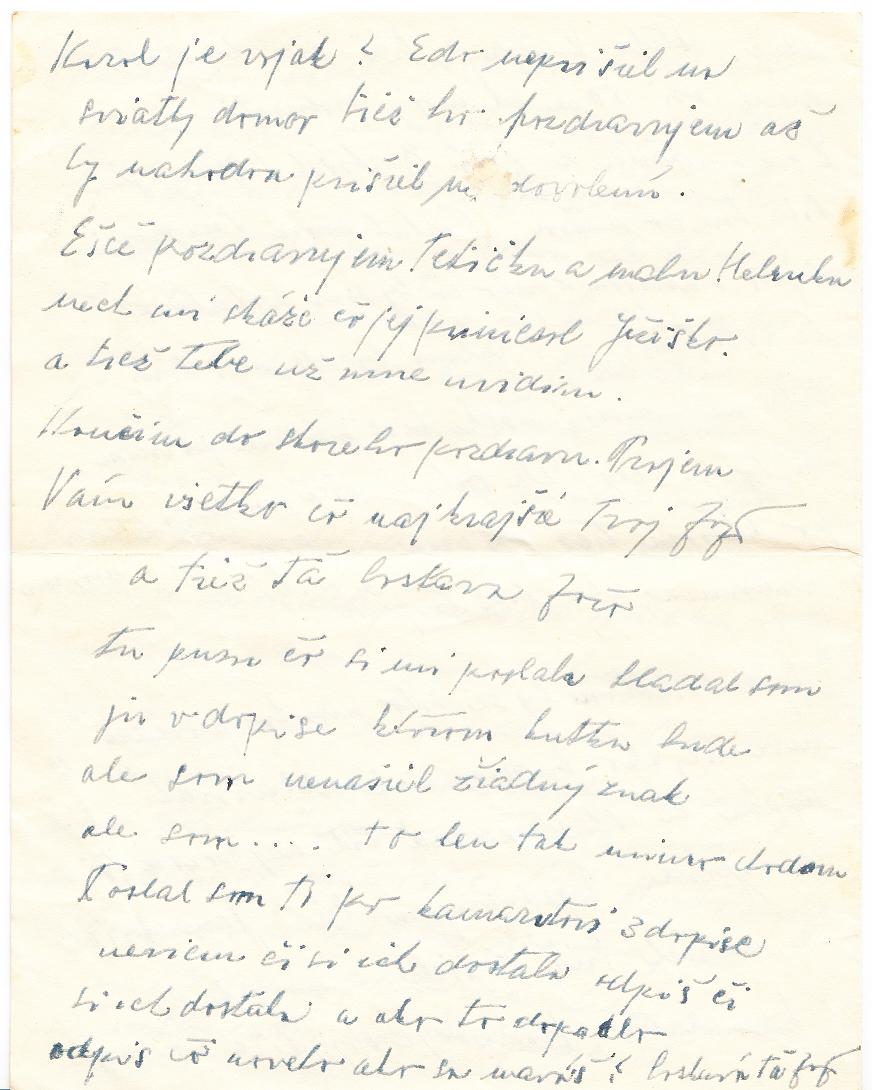 Karol je vojak? Edo neprišiel na
sviatky domov tiež ho pozdravujem až
by nahodou prišiel na dovolenú.
Ešče pozdravujem Tetičku a malu Helenku
nech mi skáže čo jej priniesol Ježiško.
a tiež Tebe už mne uvidím.
Končím do skoreho pozdravu. Prajem
Vám všetko čo najkrajšé Tvoj Jožo
a tiež Ťa boskava Jožo
tu pusu čo si mi poslala hladal som
ju v dopise ktorom kutku bude
ale som nenašiel žiadný znak
ale som.... to len tak mimo dodam
Poslal som Ti po kamaratovi 3 dopise
neviem či si ich dostala odpiš či
si ich dostala a ako to dopadlo
odpiš čo noveho ako sa maváš? boskává Ťa Jožo